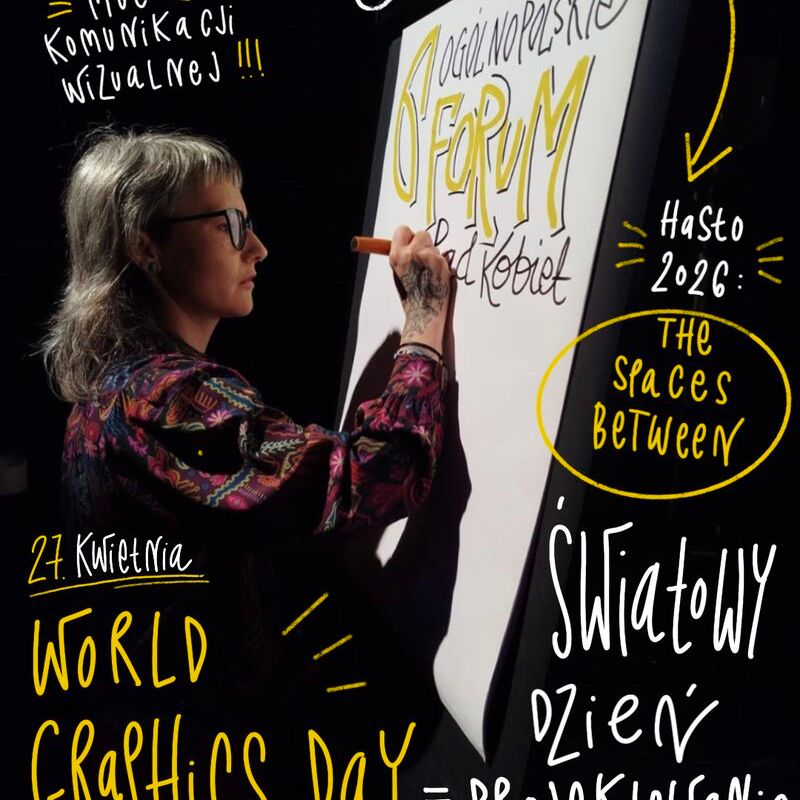 MOC
KOMUNIKACJI
WIZUALNEJ !!!
6 OGÓLNOPOLSKIE
FORUM
Rad Kobiet
HASŁO
2026:
THE
SPACES
BETWEEN
27. KWIETNIA
WORLD
GRAPHICS DAY
ŚWIATOWY
DZIEŃ
= PROJEKTOWANIA